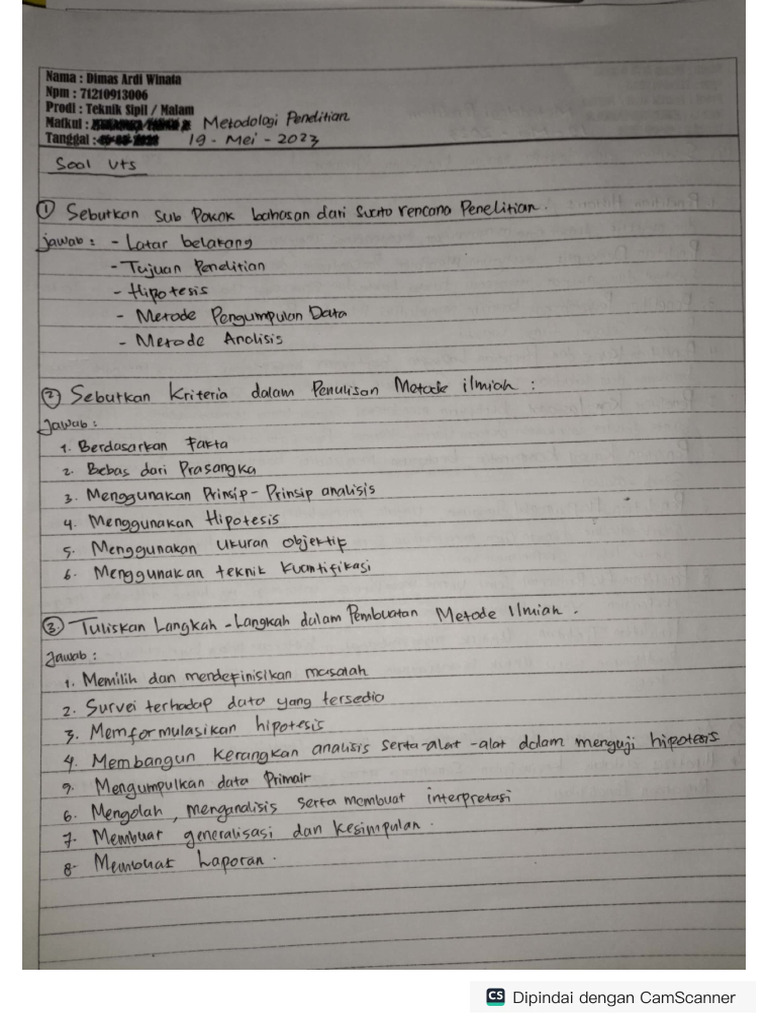 Nama : Dimas Ardi Winata
Npm : 71210913006
Prodi : Teknik Sipil / Malam
Matkul : Metodologi Penelitian
Tanggal : 19 - Mei - 2023
Soal Uts
① Sebutkan Sub Pokok bahasan dari Suato rencana Penelitian.
jawab : - Latar belakang
- Tujuan Penelitian
- Hipotesis
- Metode Pengumpulan Data
- Metode Analisis
② Sebutkan Kriteria dalam Penulisan Metode ilmiah :
Jawab :
1. Berdasarkan Fakta
2. Bebas dari Prasangka
3. Menggunakan Prinsip - Prinsip analisis
4. Menggunakan Hipotesis
5. Menggunakan ukuran objektif
6. Menggunakan teknik Kuantifikasi
③ Tuliskan Langkah - Langkah dalam Pembuatan Metode Ilmiah .
Jawab :
1. Memilih dan mendefinisikan masalah
2. Survei terhadap data yang tersedia
3. Memformulasikan hipotesis
4. Membangun kerangkan analisis serta-alat -alat dalam menguji hipotesis
5. Mengumpulkan data Primair
6. Mengolah , menganalisis serta membuat interpretasi
7. Membuat generalisasi dan kesimpulan .
8- Membuat Laporan .
CS Dipindai dengan CamScanner